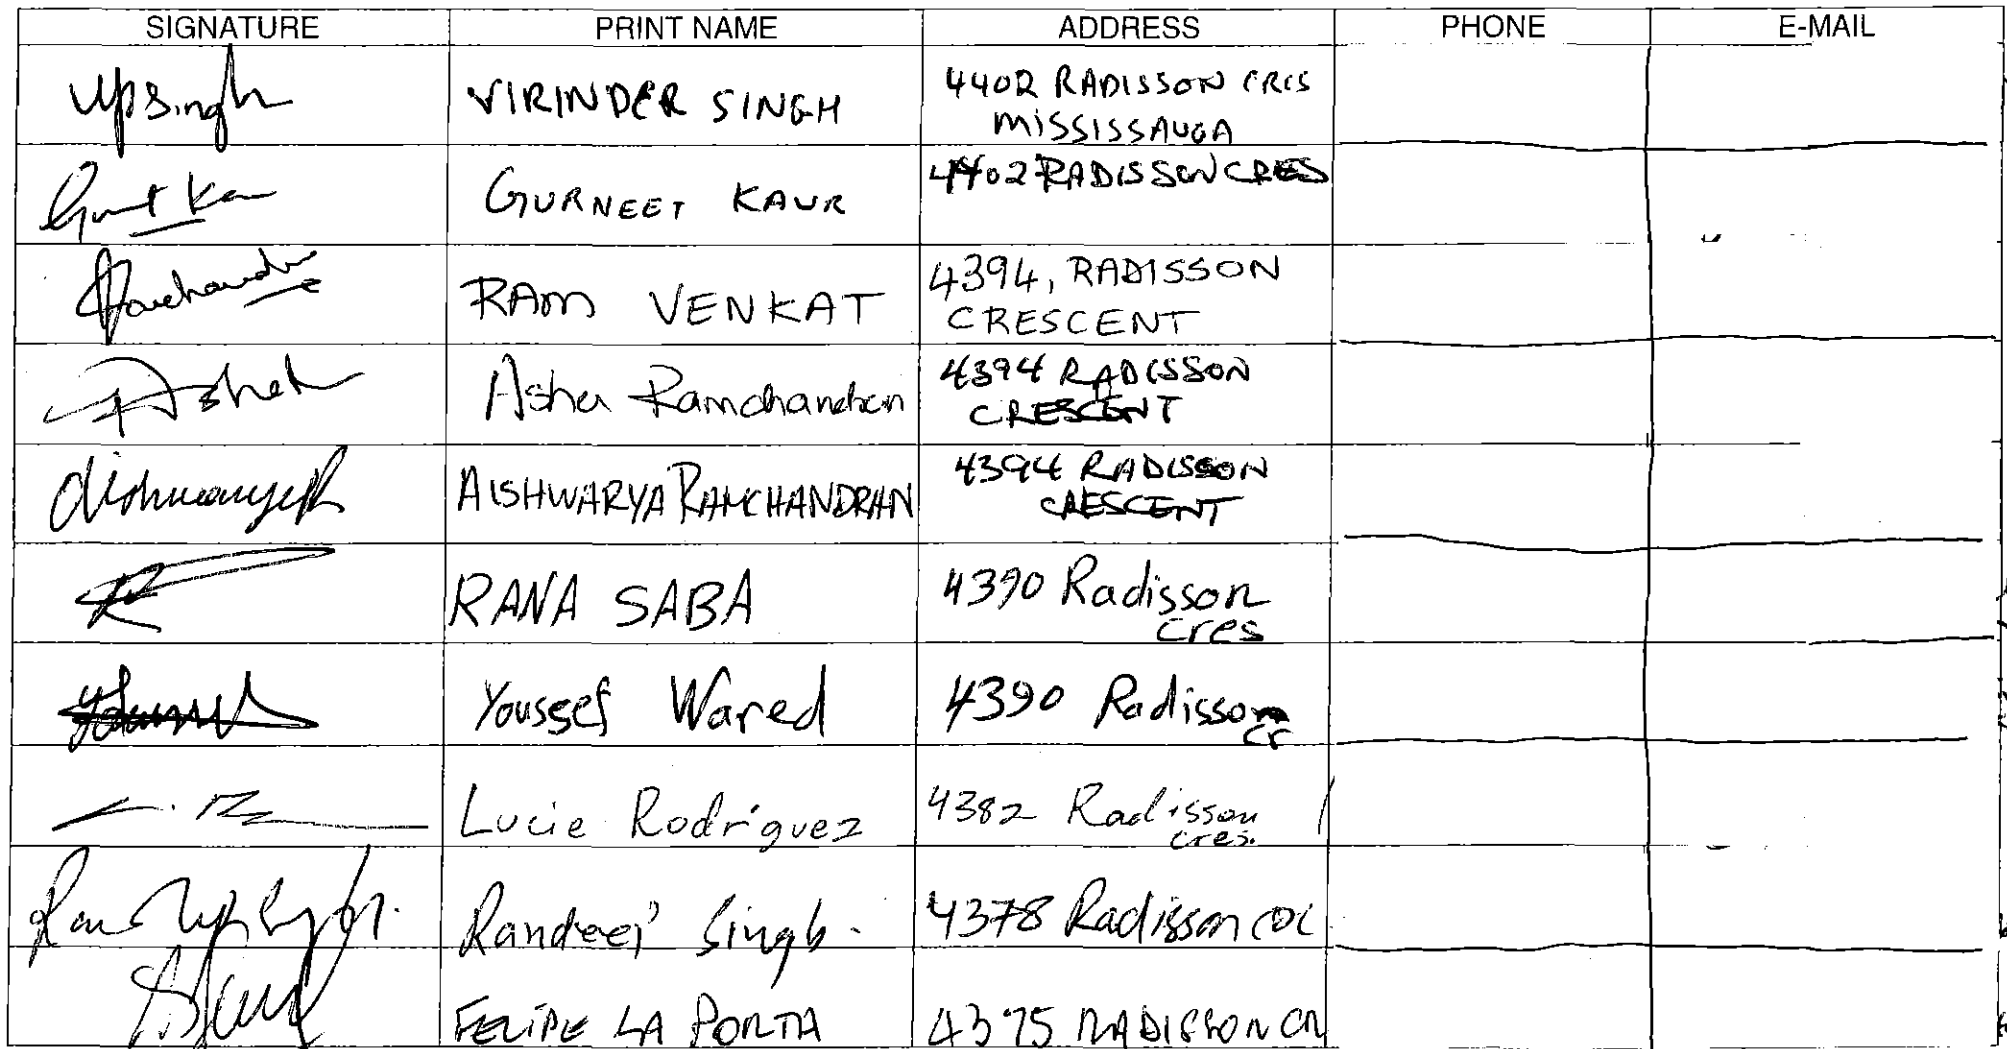 SIGNATURE PRINT NAME ADDRESS PHONE E-MAIL
VPSingh VIRINDER SINGH 4402 RADISSON CRES
MISSISSAUGA
GURNEET KAUR 4402 RADISSON CRES
RAM VENKAT 4394, RADISSON
CRESCENT
Asha Ramchandran 4394 RADISSON
CRESCENT
AISHWARYA RAMCHANDRAN 4394 RADISSON
CRESCENT
RANA SABA 4390 Radisson
cres
Youssef Wared 4390 Radisson
cr
Lucie Rodriguez 4382 Radisson
cres.
Singh. 4378 Radisson
FELIPE LA PORTA 4375 RADISSON CR